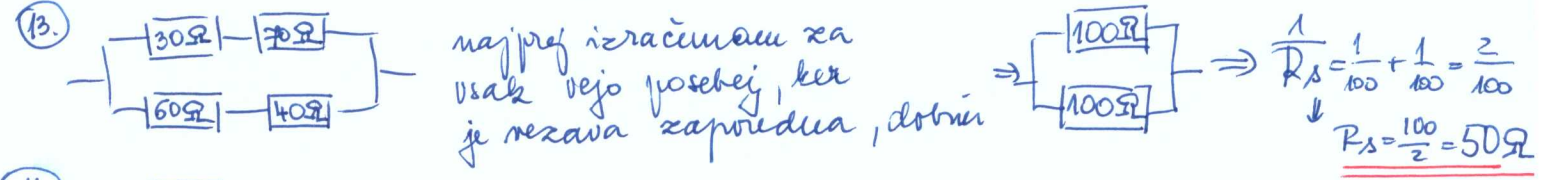 13.
30Ω 70Ω
60Ω 40Ω
najprej izračunam za
vsak vejo posebej, ker
je vezava zaporedna, dobim
⇒ 100Ω
100Ω
⇒ 1/Rs = 1/100 + 1/100 = 2/100
↓
Rs = 100/2 = 50Ω